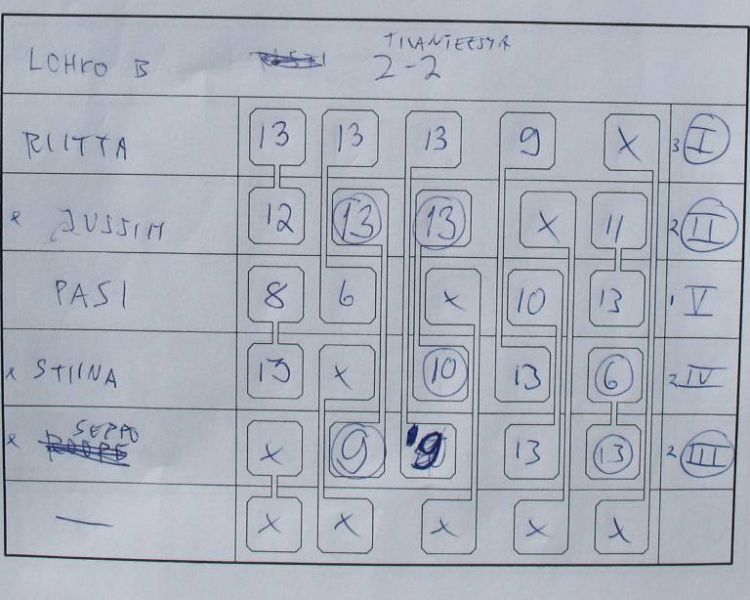 TILANTEESTA
LOHKO B 2-2
RIITTA 13 13 13 9 X 3 I
x JUSSIM 12 13 13 X 11 2 II
PASI 8 6 X 10 13 1 V
x STIINA 13 X 10 13 6 2 IV
SEPPO
x X 9 9 13 13 2 III
— X X X X X